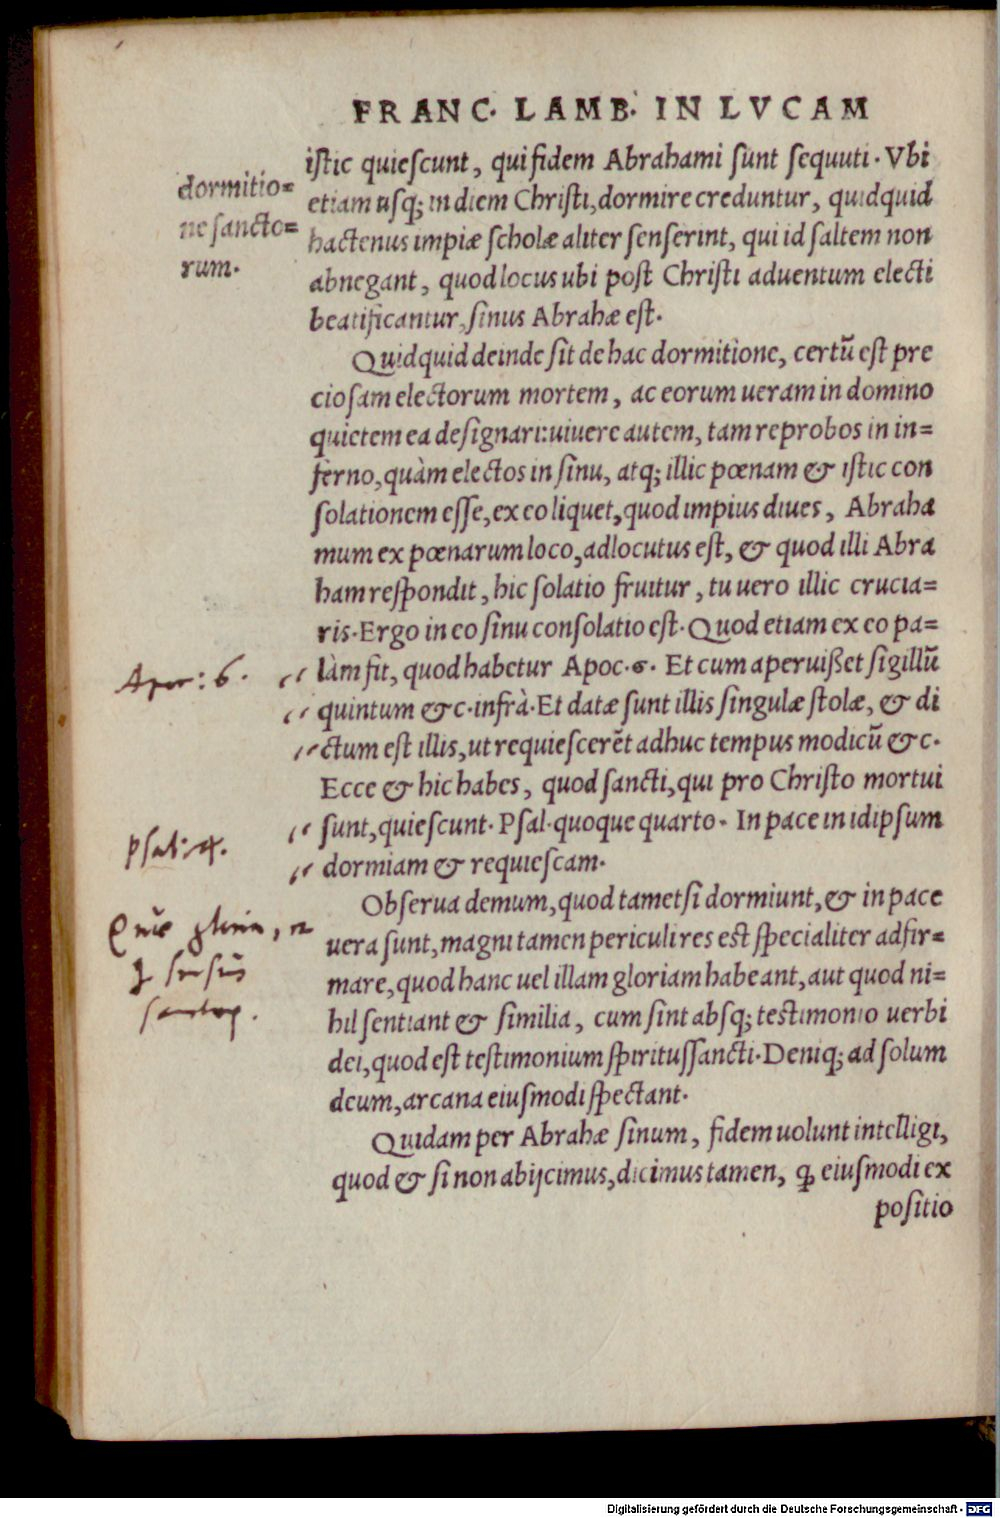 FRANC. LAMB. IN LVCAM
dormitio=
ne sancto=
rum.
iſtic quieſcunt, qui fidem Abrahami ſunt ſequuti. Vbi
etiam uſq; in diem Chriſti, dormire creduntur, quidquid
hactenus impiæ ſcholæ aliter ſenſerint, qui id ſaltem non
abnegant, quod locus ubi poſt Chriſti aduentum electi
beatificantur, ſinus Abrahæ eſt.
Quidquid deinde ſit de hac dormitione, certũ eſt pre
cioſam electorum mortem, ac eorum ueram in domino
quietem ea deſignari: uiuere autem, tam reprobos in in=
ferno, quàm electos in ſinu, atq; illic pœnam & iſtic con
ſolationem eſſe, ex eo liquet, quod impius diues, Abraha
mum ex pœnarum loco, adlocutus eſt, & quod illi Abra
ham reſpondit, hic ſolatio fruitur, tu uero illic crucia=
ris. Ergo in eo ſinu conſolatio eſt. Quod etiam ex eo pa=
làm fit, quod habetur Apoc. 6. Et cum aperuißet ſigillũ
quintum &c. infrà. Et datæ ſunt illis ſingulæ ſtolæ, & di
ctum eſt illis, ut requieſcerẽt adhuc tempus modicũ &c.
Ecce & hic habes, quod ſancti, qui pro Chriſto mortui
ſunt, quieſcunt. Pſal. quoque quarto. In pace in idipſum
dormiam & requieſcam.
Obſerua demum, quod tametſi dormiunt, & in pace
uera ſunt, magni tamen periculi res est ſpecialiter adfir=
mare, quod hanc uel illam gloriam habeant, aut quod ni=
hil ſentiant & ſimilia, cum ſint abſq; teſtimonio uerbi
dei, quod eſt teſtimonium ſpirituſſancti. Deniq; ad ſolum
deum, arcana eiuſmodi ſpectant.
Quidam per Abrahæ ſinum, fidem uolunt intelligi,
quod & ſi non abijcimus, dicimus tamen, ꝙ eiuſmodi ex
poſitio
Apoc: 6.
Psal: 4.
Digitalisierung gefördert durch die Deutsche Forschungsgemeinschaft - DFG